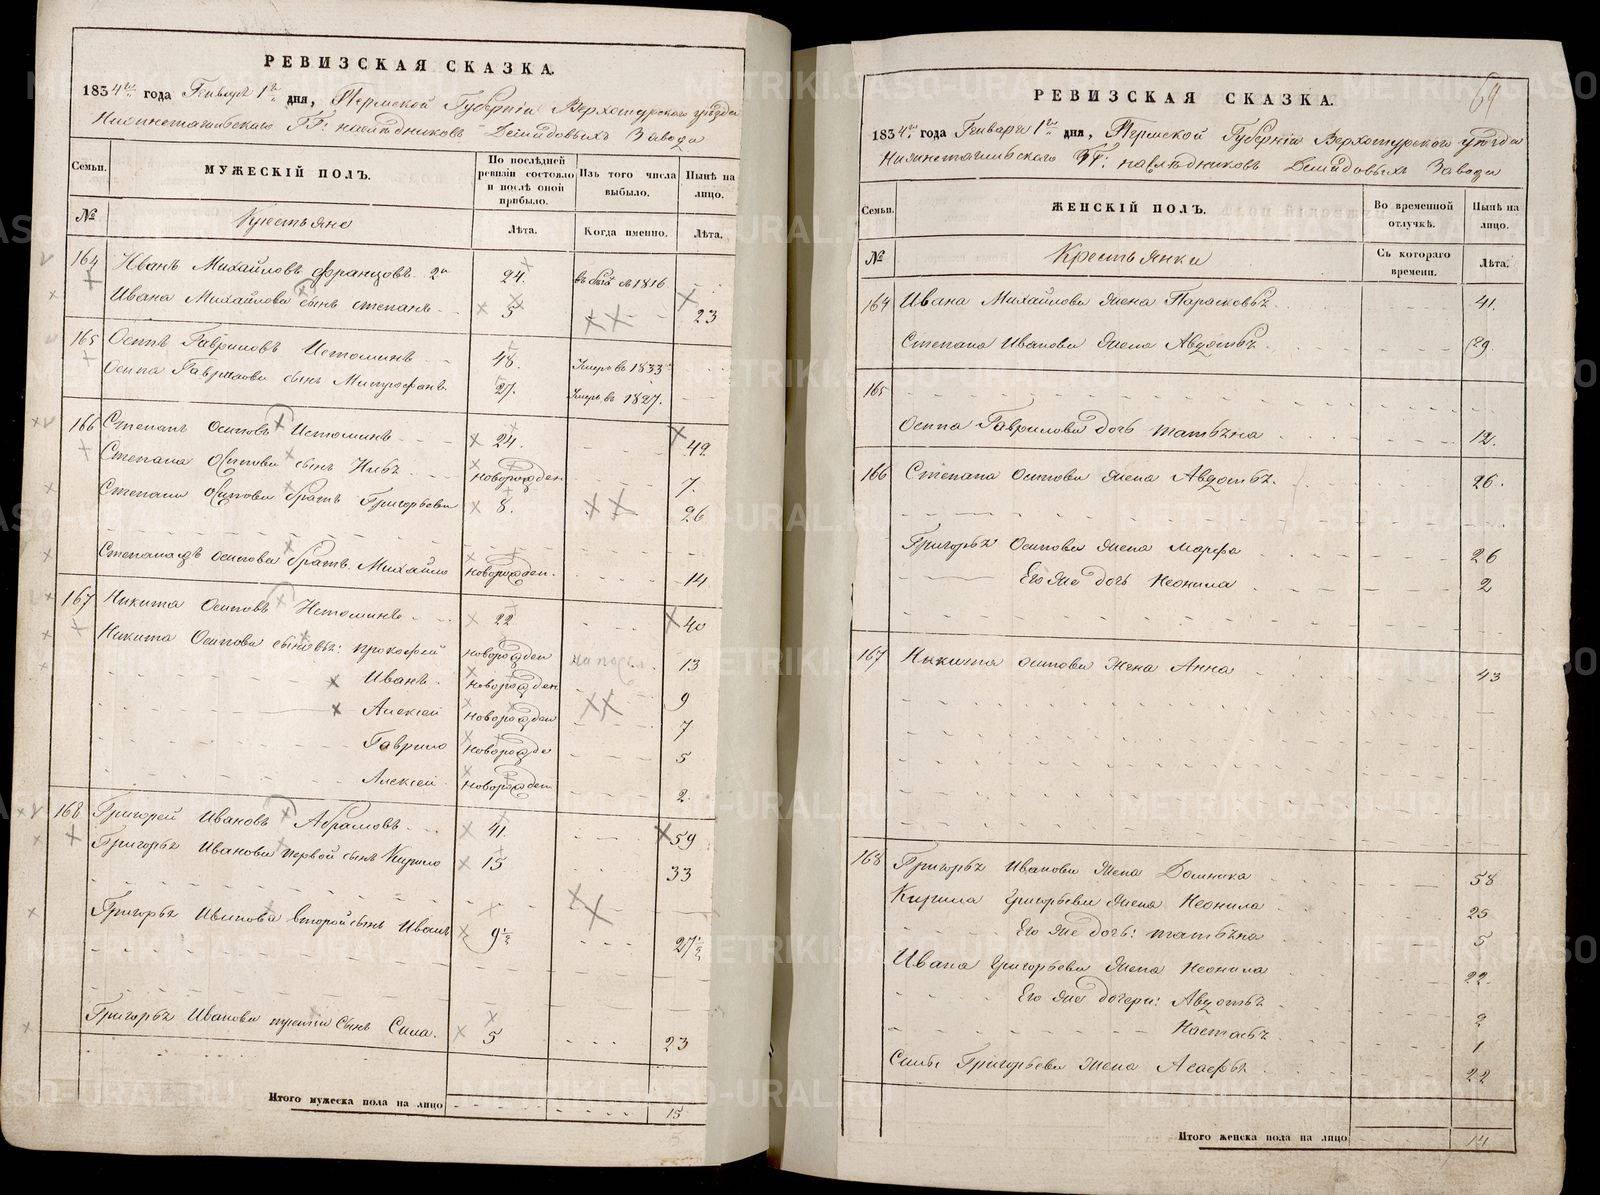 РЕВИЗСКАЯ СКАЗКА.
1834го года Генваря 1го дня, Пермской Губернiи Верхотурского уѣзда
Нижнетагильскаго ГГ: наслѣдниковъ Демидовыхъ Завода
Семьи.
МУЖЕСКIЙ ПОЛЪ.
По послѣдней ревизiи состояло и послѣ оной прибыло.
Изъ того числа выбыло.
Нынѣ на лицо.
№
Крестьяне
Лѣта.
Когда именно.
Лѣта.
164 Иванъ Михайловъ Францовъ 24. 1816
Ивана Михайлова сынъ Степанъ 5 23
165 Осипъ Гавриловъ Истоминъ 48. Умеръ въ 1833
Осипа Гаврилова сынъ Митрофанъ 27. Умеръ въ 1827.
166 Степанъ Осиповъ Истоминъ 24. 42
Степана Осипова сынъ Новорожден 7.
Степана Осипова братъ Григорьевъ 8. 26
Осипова братъ Михайло новорожден. 14
167 Никита Осиповъ Истоминъ 22 40
Никита Осипова сыновья: Прокофей новорожден 13
Иванъ. новорожден 9
Алексей новорожден 7
Гаврило новорожде 5
Алексей новорожден 2.
168 Григорей Ивановъ Абрамовъ 41. 59
Григорья Иванова первой сынъ Кирило 15 33
Григорья Иванова второй сынъ Иванъ 9½ 27½
Григорья Иванова третiй сынъ Сила. 5 23
Итого мужеска пола на лицо 15
69
РЕВИЗСКАЯ СКАЗКА.
1834го года Генваря 1го дня, Пермской Губернiи Верхотурского уѣзда
Нижнетагильскаго ГГ: наслѣдниковъ Демидовыхъ Завода
Семьи.
ЖЕНСКIЙ ПОЛЪ.
Во временной отлучкѣ.
Нынѣ на лицо.
№
Крестьянки
Съ котораго времени.
Лѣта.
164 Ивана Михайлова жена Парасковья 41.
Степана Иванова жена Авдотья 29
165
Осипа Гаврилова дочь Татьяна 12.
166 Степана Осипова жена Авдотья. 26.
Григорья Осипова жена Марфа 26
Его же дочь Неонила 2
167 Никиты Осипова жена Анна 43
168 Григорья Иванова жена Домника 58
Кирила Григорьева жена Неонила 25
Его же дочь: Татьяна 5
Ивана Григорьева жена Неонила 22.
Его же дочери: Авдотья 2
Настасья 1
Силы Григорьева жена Агафья 22
Итого женска пола на лицо 14
METRIKI.GASO-URAL.RU